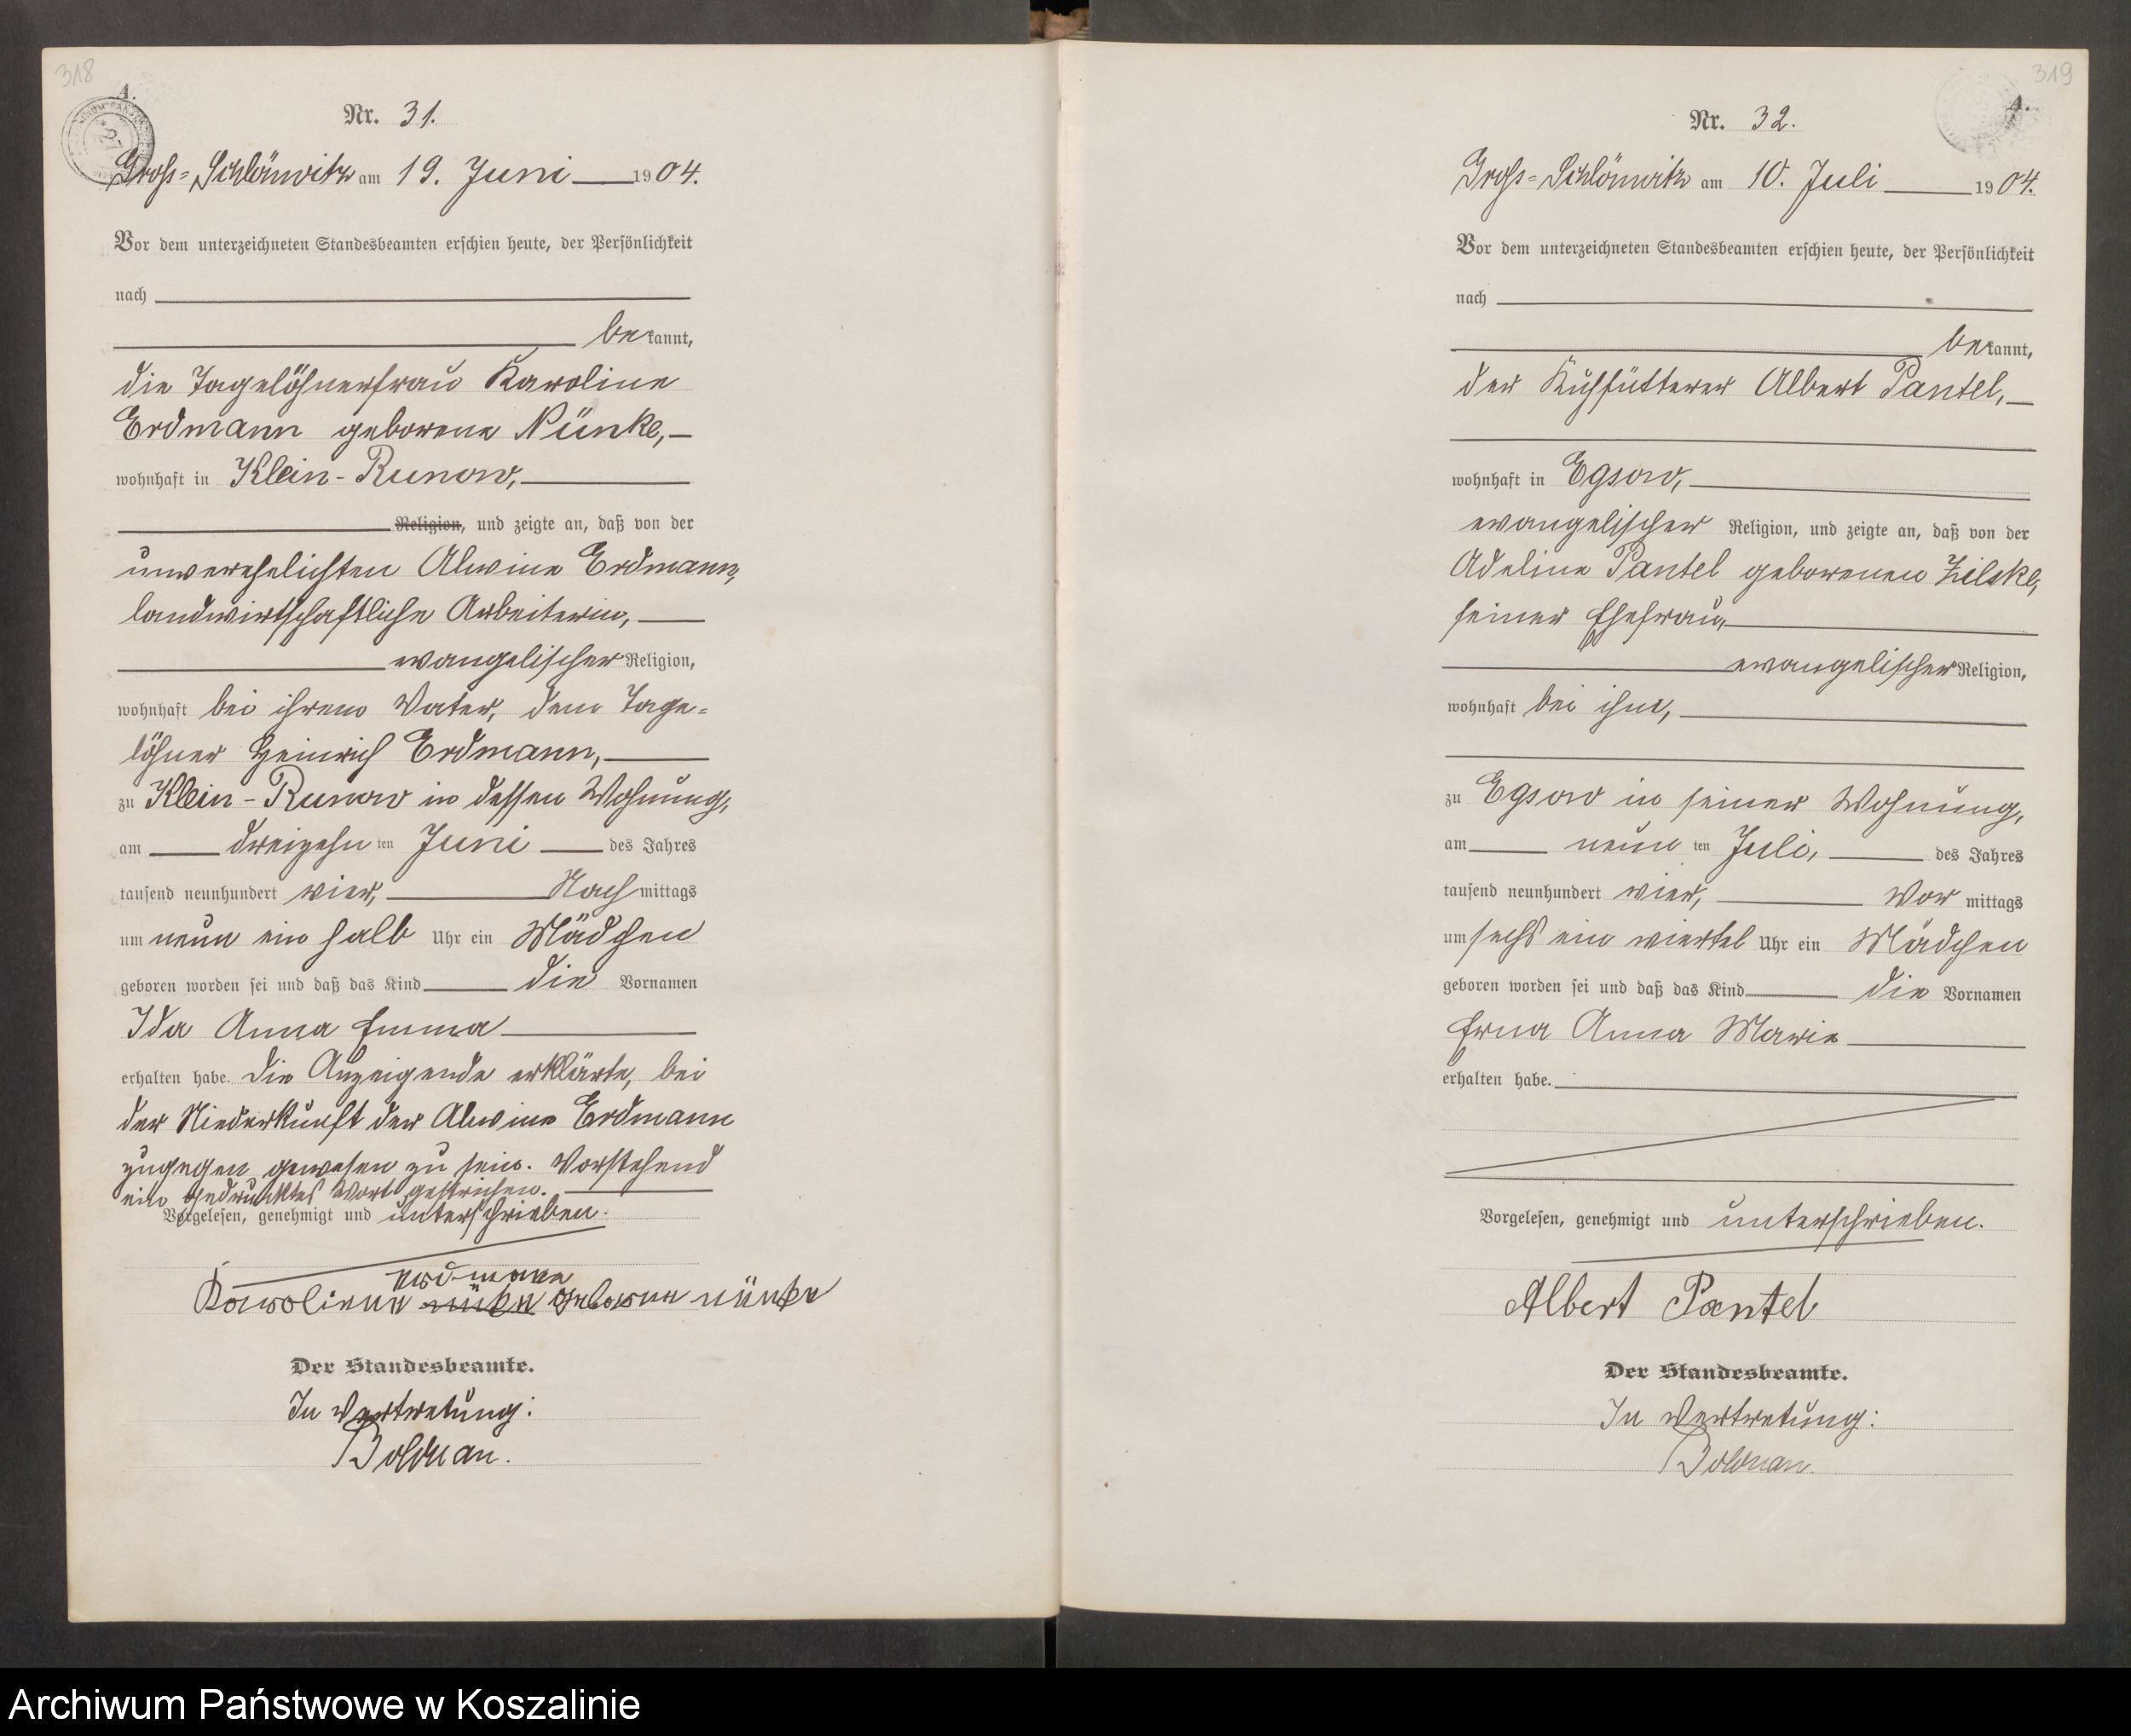 318
A.
Nr. 31.
Gross-Schlönwitz am 19. Juni 1904.
Vor dem unterzeichneten Standesbeamten erschien heute, der Persönlichkeit
nach
bekannt,
die Tagelöhnerfrau Karoline
Erdmann geborene Nünke,
wohnhaft in Klein-Runow,
Religion, und zeigte an, daß von der
unverehelichten Alwine Erdmann,
landwirtschaftliche Arbeiterin,
evangelischer Religion,
wohnhaft bei ihrem Vater, dem Tage-
löhner Heinrich Erdmann,
zu Klein-Runow in dessen Wohnung,
am dreizehnten Juni des Jahres
tausend neunhundert vier, Nachmittags
um neun ein halb Uhr ein Mädchen
geboren worden sei und daß das Kind die Vornamen
Ida Anna Emma
erhalten habe. Die Anzeigende erklärte, bei
der Niederkunft der Alwine Erdmann
zugegen gewesen zu sein. Vorstehend
ein gedrucktes Wort gestrichen.
Vorgelesen, genehmigt und unterschrieben.
erdmann
Karoline geborene nünke
Der Standesbeamte.
In Vertretung:
Bolduan.
319
A.
Nr. 32.
Gross-Schlönwitz am 10. Juli 1904.
Vor dem unterzeichneten Standesbeamten erschien heute, der Persönlichkeit
nach
bekannt,
der Kuhfütterer Albert Pantel,
wohnhaft in Egsow,
evangelischer Religion, und zeigte an, daß von der
Adeline Pantel geborenen Zilske,
seiner Ehefrau,
evangelischer Religion,
wohnhaft bei ihm,
zu Egsow in seiner Wohnung,
am neunten Juli, des Jahres
tausend neunhundert vier, Vormittags
um sechs ein viertel Uhr ein Mädchen
geboren worden sei und daß das Kind die Vornamen
Erna Anna Marie
erhalten habe.
Vorgelesen, genehmigt und unterschrieben.
Albert Pantel
Der Standesbeamte.
In Vertretung:
Bolduan.
Archiwum Państwowe w Koszalinie